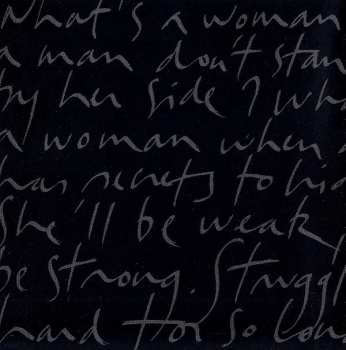 What's a woman
a man don't stan
by her side? Wha
a woman when a
has secrets to hid
She'll be weak,
be strong. Struggl
hard for so long